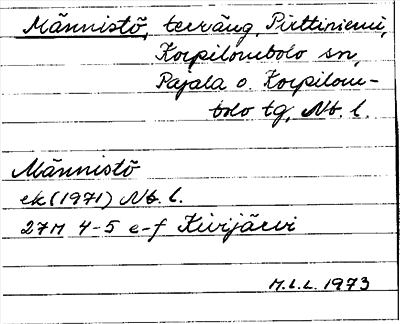 Männistö, terräng, Pirttiniemi,
Korpilombolo sn,
Pajala o. Korpilom-
bolo tg, Nb. l.
Männistö
ek (1971) Nb. l.
27M 4-5 e-f Kivijärvi
M.L.L. 1973